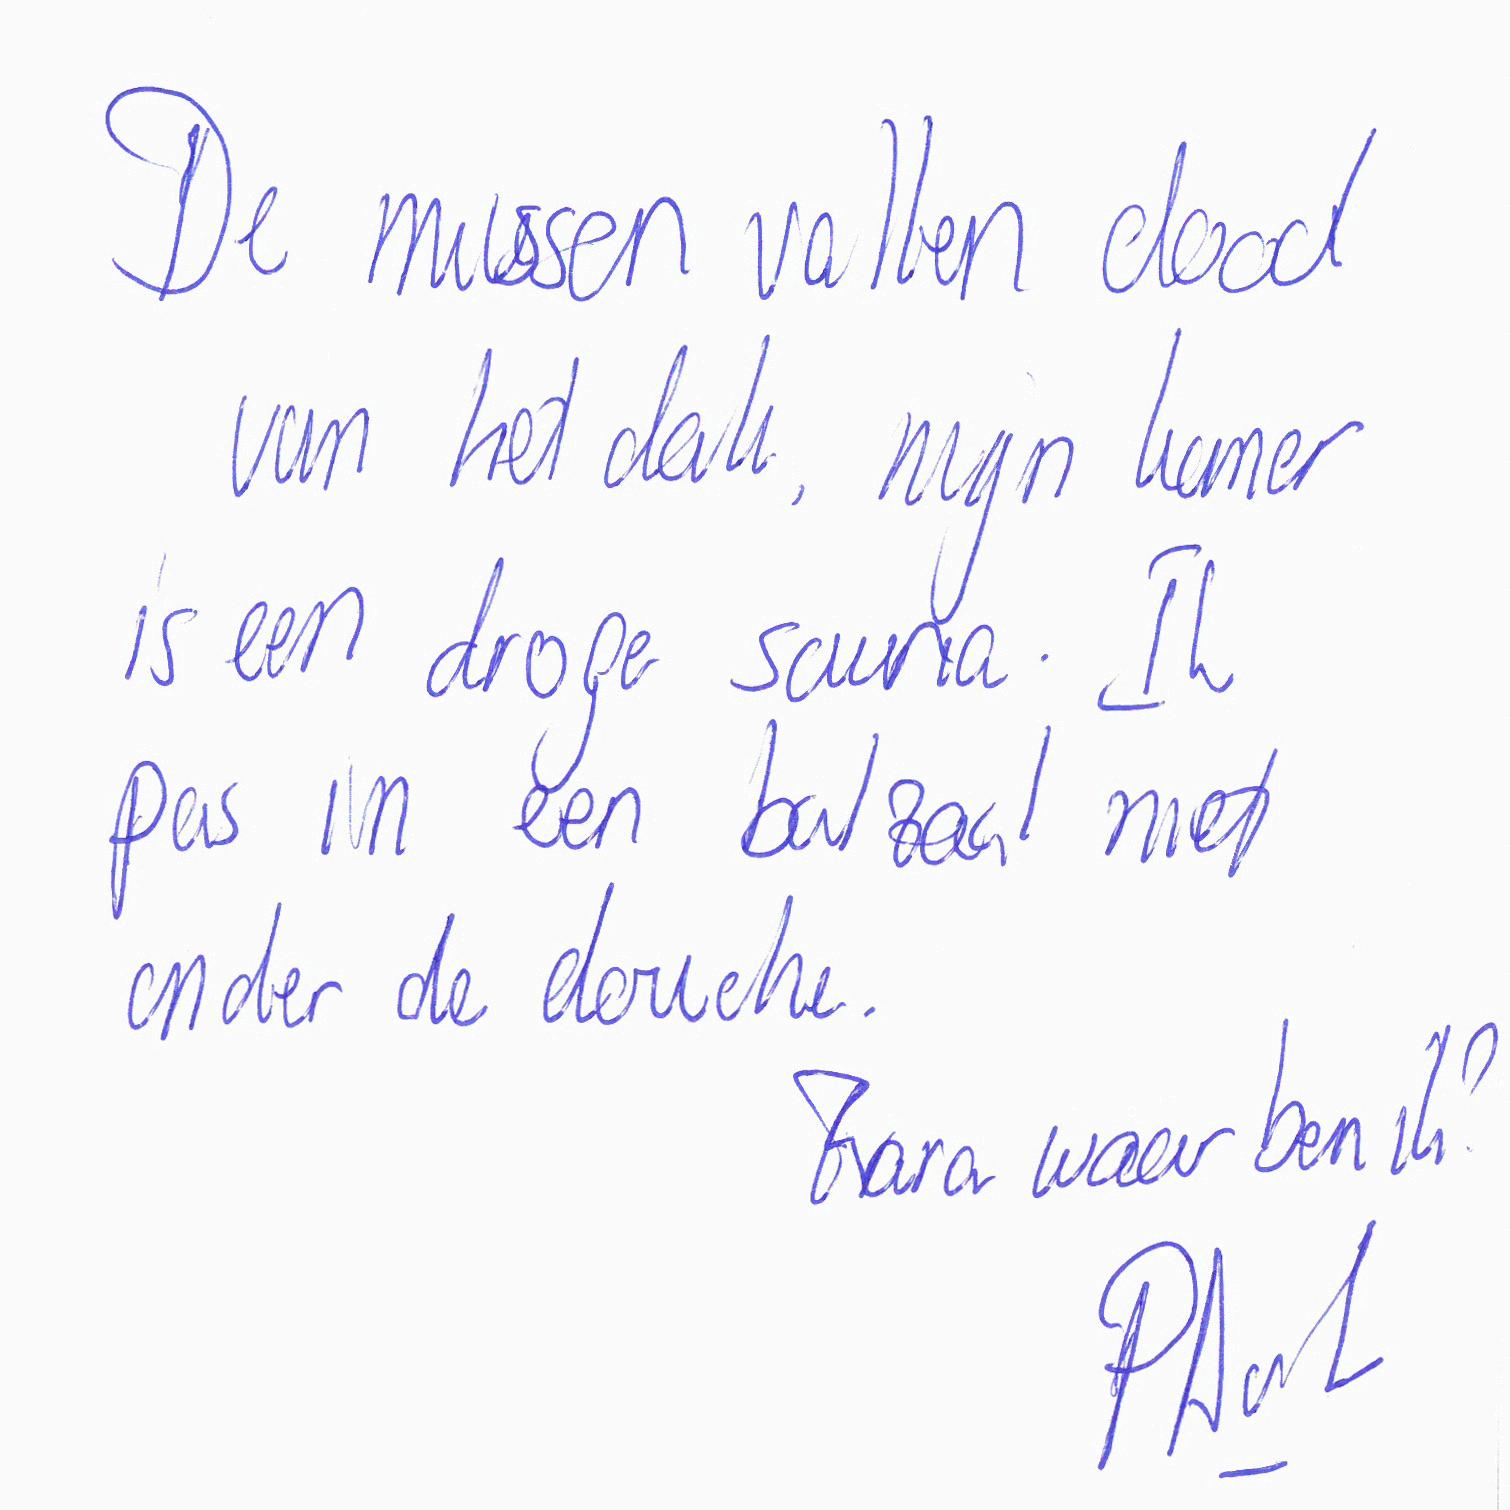 De mussen vallen dood
van het dak, mijn kamer
is een droge sauna. Ik
pas in een balzaal met
onder de douche.
Tiara waar ben ik?
PAul